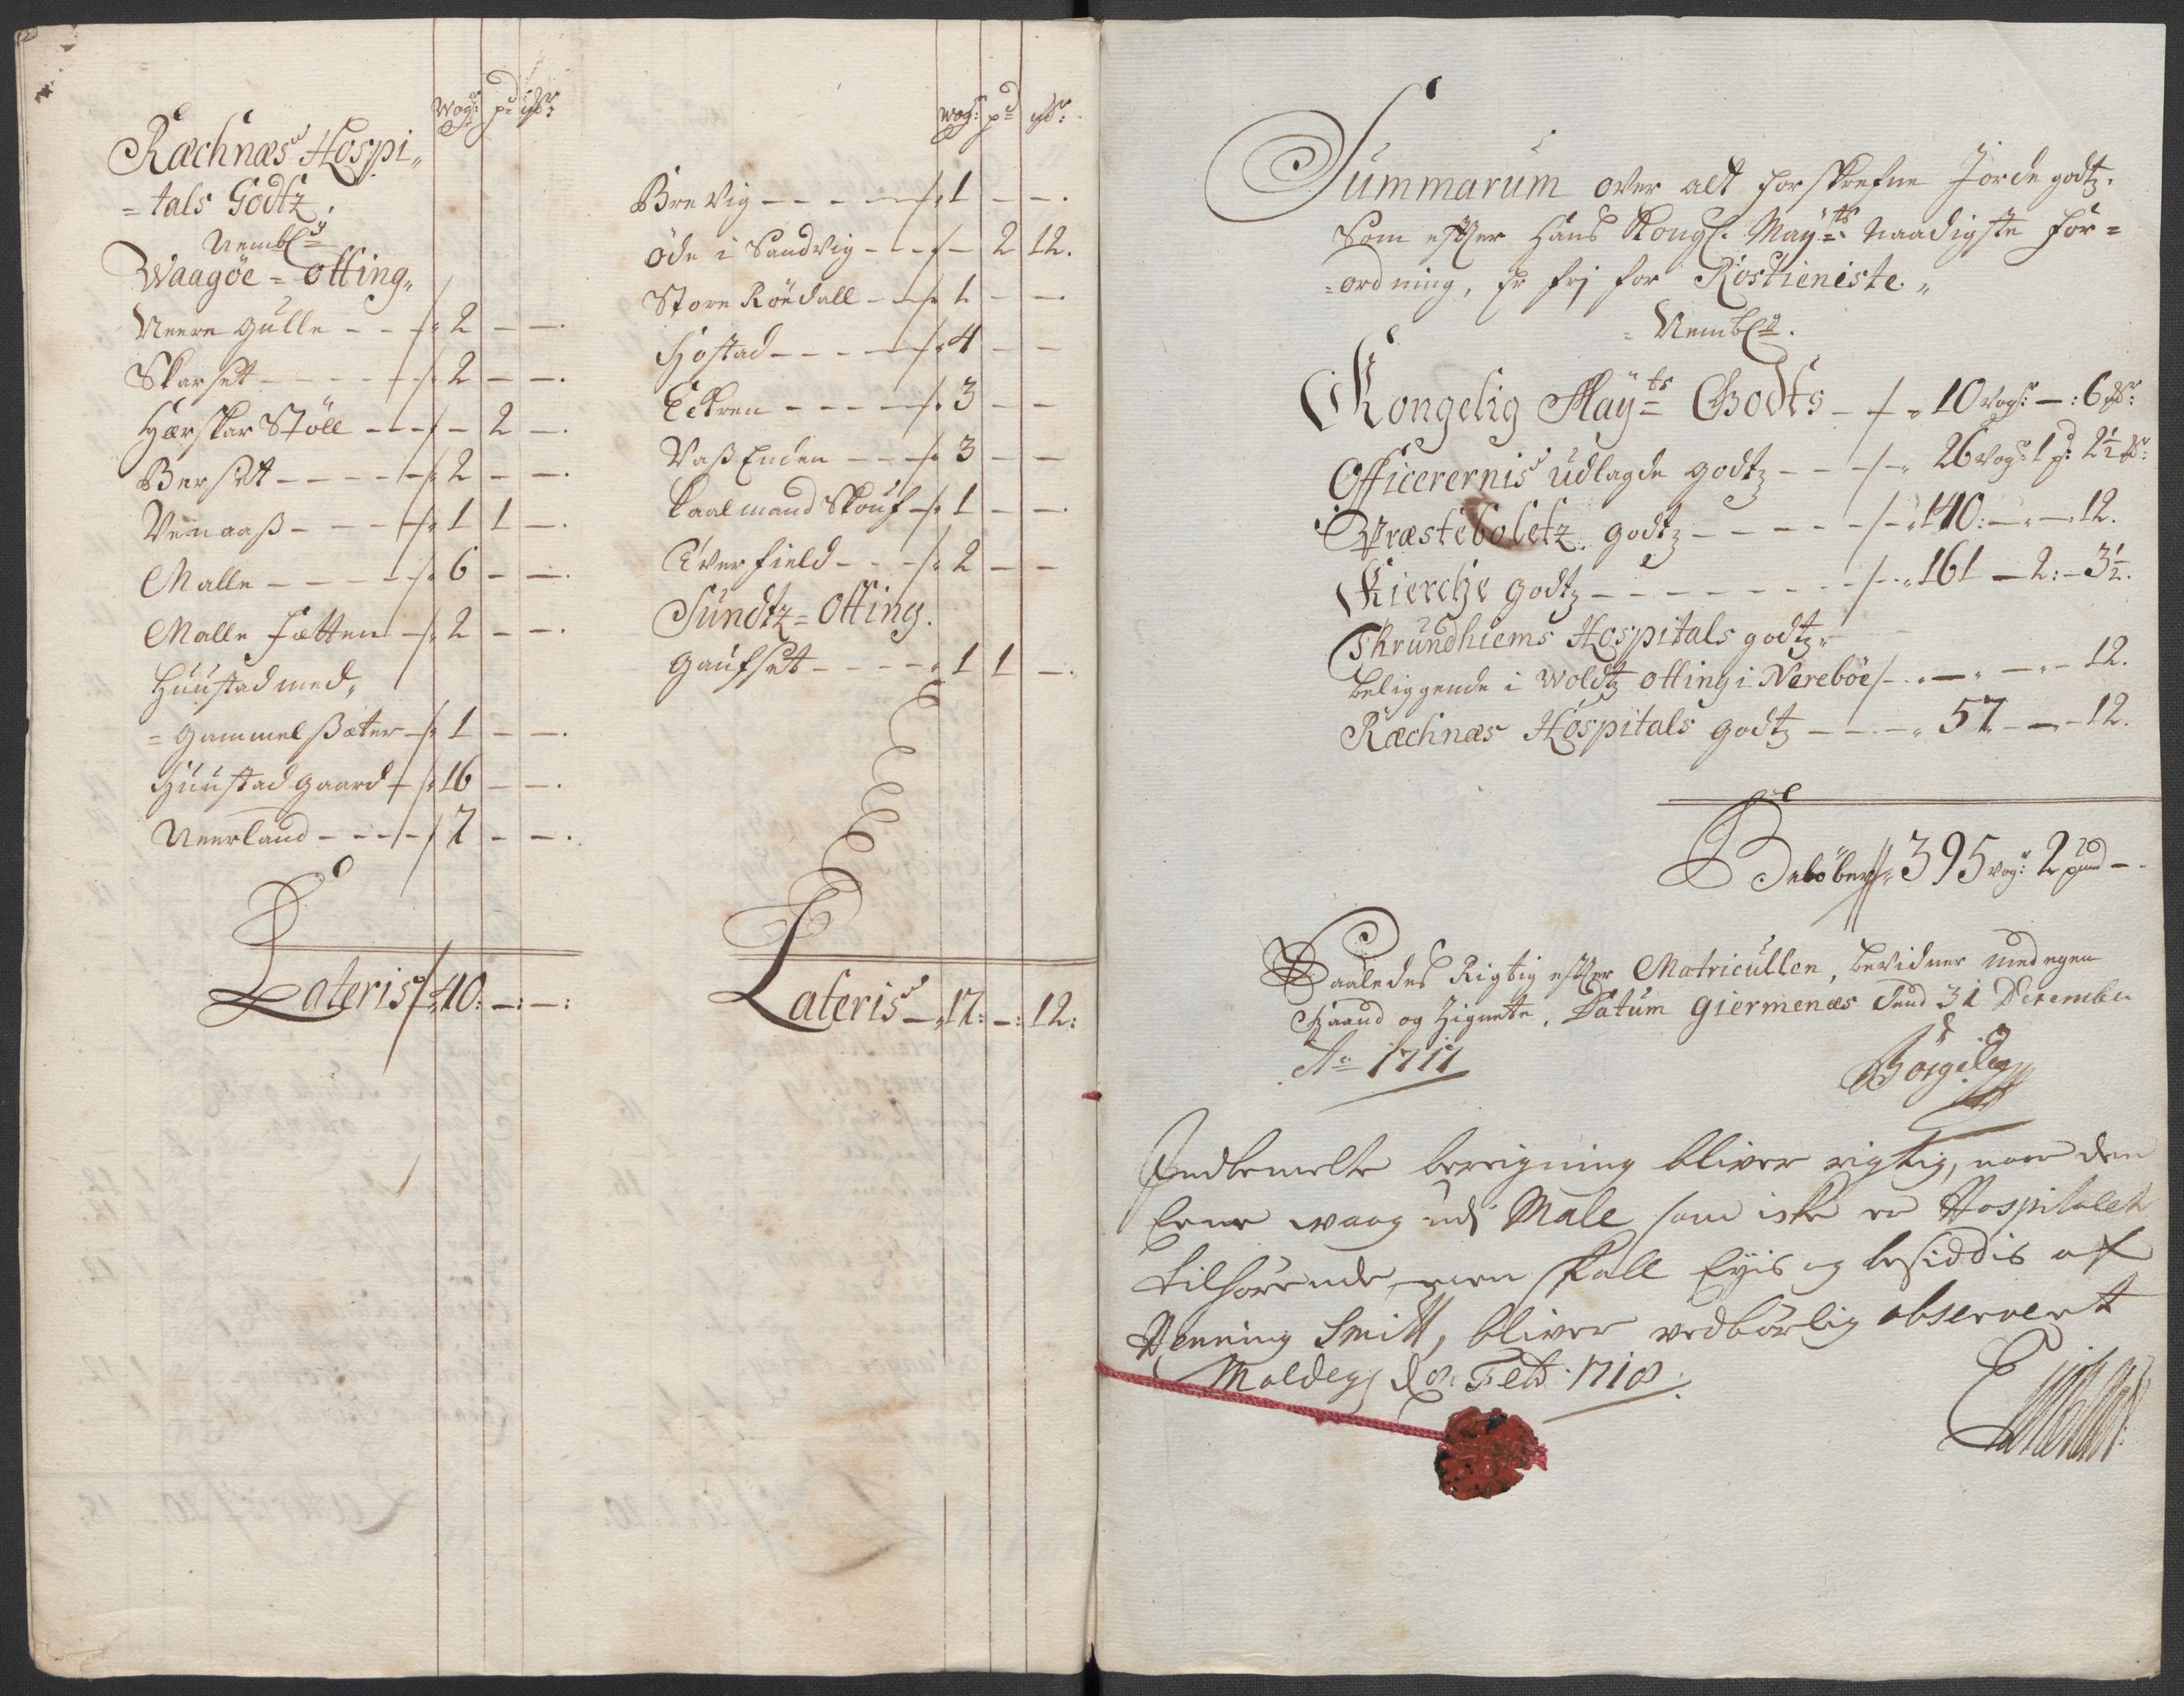 Wog: pd mkr:
Ræchnæs Hospi„
=tals Godtz.
Nembl:
Waagöe=Otting„
Neere Gulle - - - 2 - -.
Skarset - - - - - 2 - -.
Hærskar Stöll - - - - 2 -.
Berset - - - - - 2 - -.
Venaaß - - - - 1 1 -.
Malle - - - - - 6 - -.
Malle Fætten - 2 - -.
Huustad med,
=Gammelsæter - 1 - -.
Huustad gaard - 16 - -.
Neerland - - - - 7 - -.
Lateris 40: -: -:
wog: pd mkr:
Brevig - - - - - 1 - -.
Öde i Sandvig - - - - 2 12.
Store Röedall - - 1 - -
Hostad - - - - - 4 - -
Eckren - - - - - 3 - -
Vaß Enden - - - 3 - -
Kaalmand Skouf - 1 - -.
Tverfield - - - 2 - -
Sundtz=Otting.
Gaufset - - - - 1 1 -.
Lateris - 17: -: 12:
Summarum over alt forskrefne Jorde godtz.
Som efter Hans Kongl. Mayts Naadigste for=
=ordning, Er frj for Rostieniste.„
=Nembl.
Kongelig Mayts Godts - 10 Wogr - : 6 mkr:
Officerernis udlagde godtz - - - 26 Wogr: 1 p: 2½ mkr:
Præsteboletz godtz - - - - - 140: -. -: 12.
Kierche godtz - - - - - - - 161 - 2: - 3½.
Thrundhiems Hospitals godtz„
beliggende i Woldtz otting i Nereböe - . - . - . - 12.
Ræchnæs Hospitals godtz - - - „ 57 - - - 12.
Beløber 395 wogr: 2 pund -.
Saaledes Rigtig efter Matricullen, bevidner med egen
Haand og Zignette. Datum Giermenæs Dend 31 Decembr
Ao 1717
Indbemelte beregning bliver rigtig, naar den
Eene waag udj Male som icke er Hospitalet
tilhörende men skall Eyis og besiddis af
Henning Smitt, bliver vedbörlig observert
Molde d 8. Feb: 1718.